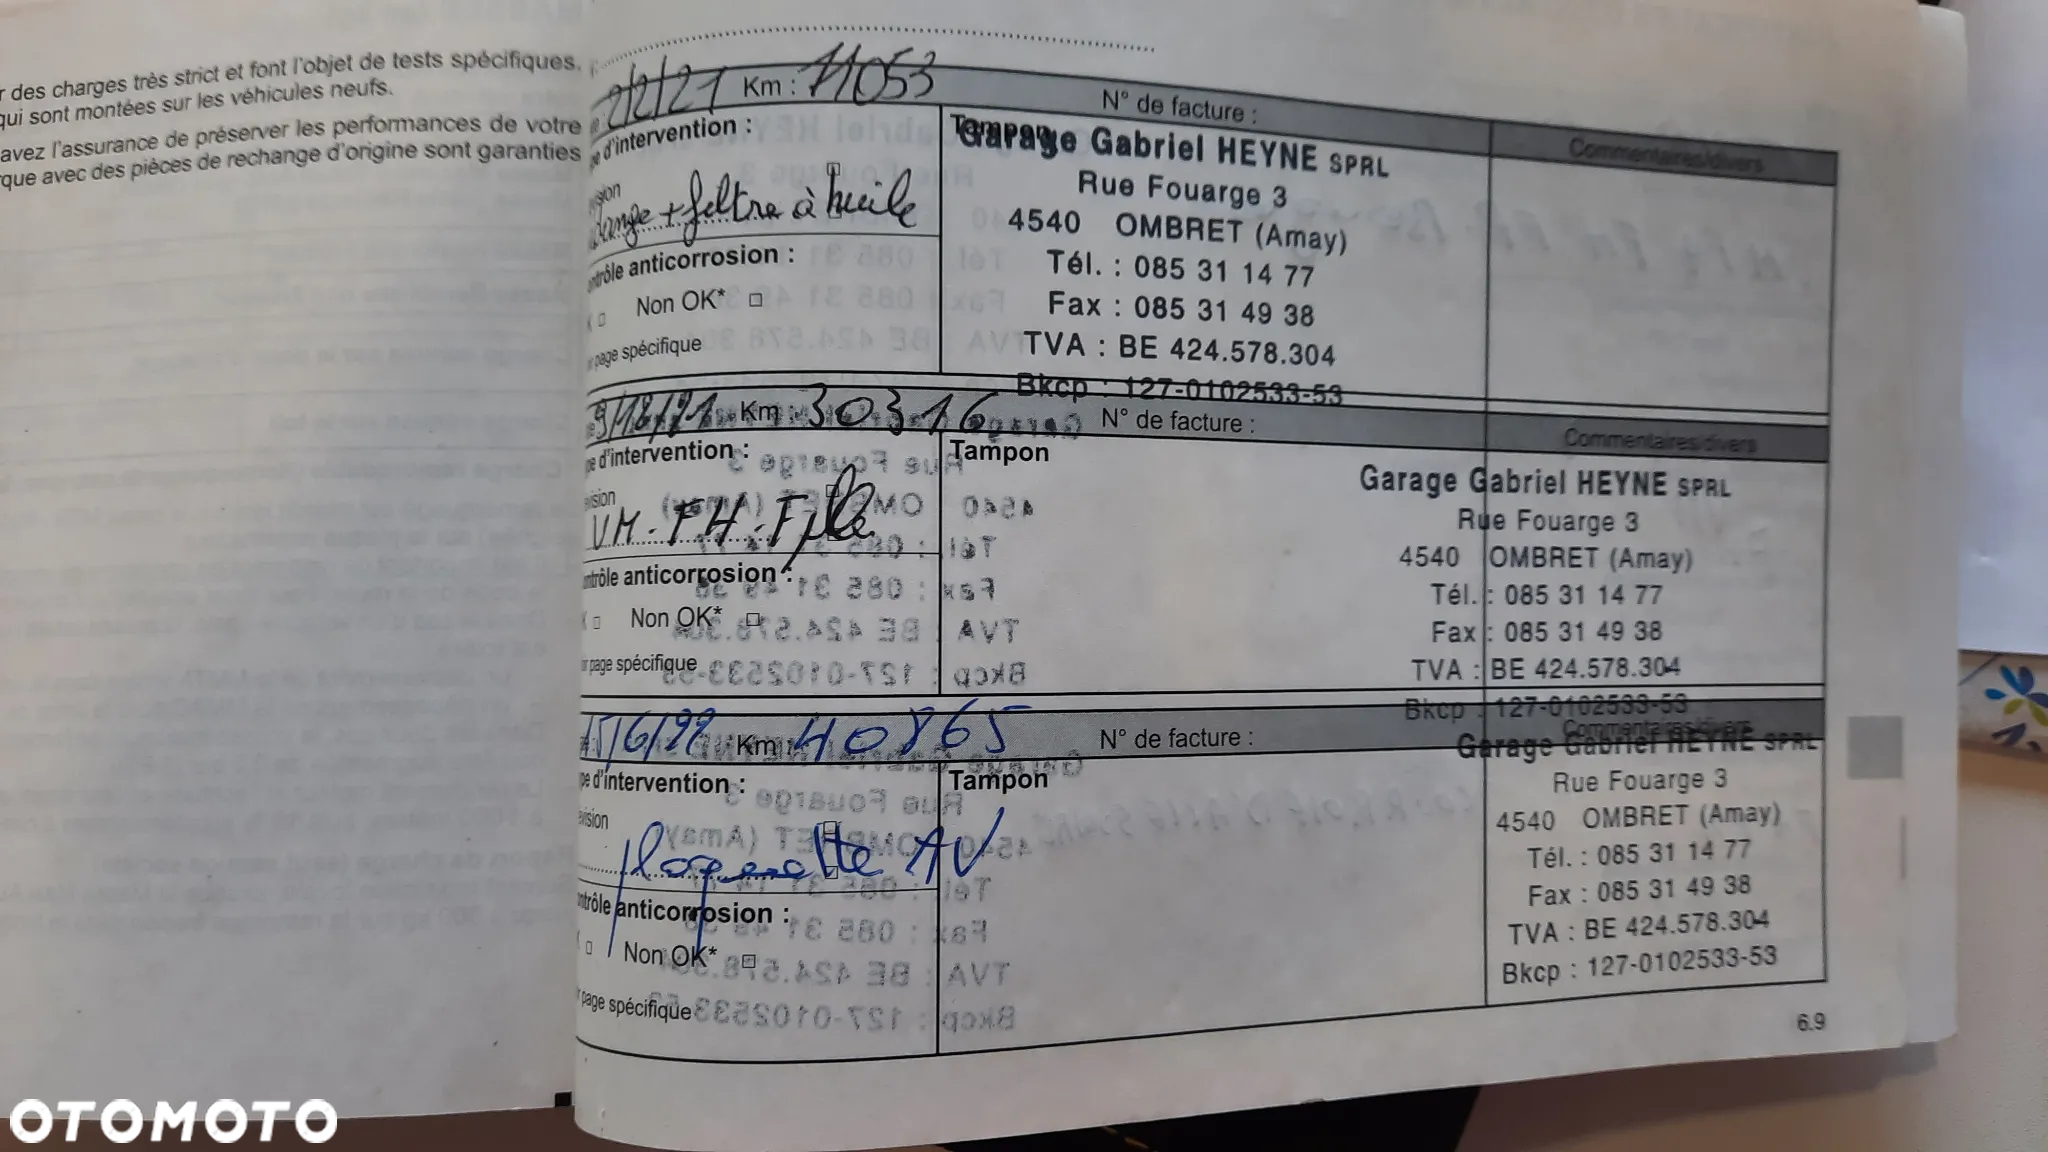 r des charges très strict et font l'objet de tests spécifiques,
qui sont montées sur les véhicules neufs.
avez l'assurance de préserver les performances de votre
que avec des pièces de rechange d'origine sont garanties
2/2/21 Km : 11053 N° de facture : Commentaires/divers
d'intervention : Tampon
Garage Gabriel HEYNE SPRL
Rue Fouarge 3
4540 OMBRET (Amay)
Tél. : 085 31 14 77
Fax : 085 31 49 38
TVA : BE 424.578.304
Bkcp : 127-0102533-53
vision
+ filtre à huile
ntrôle anticorrosion :
Non OK*
page spécifique
9/12/21 Km : 30316 N° de facture : Commentaires/divers
e d'intervention : Tampon
Garage Gabriel HEYNE SPRL
Rue Fouarge 3
4540 OMBRET (Amay)
Tél. : 085 31 14 77
Fax : 085 31 49 38
TVA : BE 424.578.304
Bkcp : 127-0102533-53
vision
VM - FH -
ntrôle anticorrosion :
Non OK*
page spécifique
15/6/22 Km : 40865 N° de facture : Commentaires/divers
pe d'intervention : Tampon
Garage Gabriel HEYNE SPRL
Rue Fouarge 3
4540 OMBRET (Amay)
Tél. : 085 31 14 77
Fax : 085 31 49 38
TVA : BE 424.578.304
Bkcp : 127-0102533-53
vision
plaquette AV
ntrôle anticorrosion :
Non OK*
page spécifique
6.9
OTOMOTO